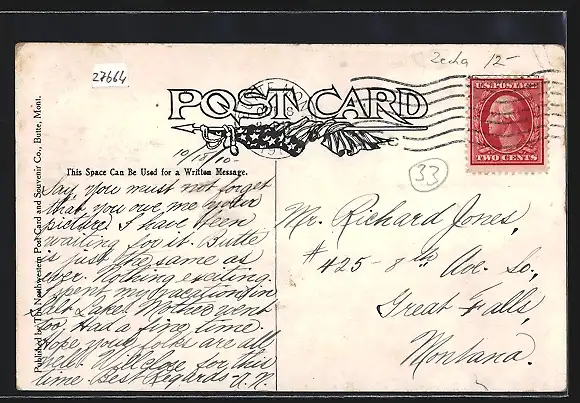 Zecha 12-
27664
POST CARD
U.S. POSTAGE
TWO CENTS
10/18/10-
33
This Space Can Be Used for a Written Message.
Published by The Northwestern Post Card and Souvenir Co., Butte, Mont.
Say, you must not forget
that you owe me your
picture. I have been
waiting for it. Butte
is just the same as
ever. Nothing exciting.
Spent my vacation in
Salt Lake. Mother went
too, Had a fine time.
Hope your folks are all
well. Will close for this
time. Best Regards-
Mr. Richard Jones,
# 425-8th Ave. So.,
Great Falls,
Montana.